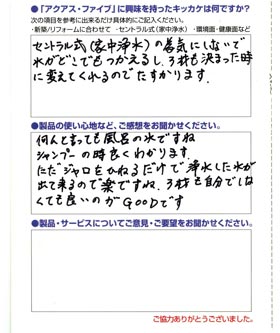 ●「アクアス・ファイブ」に興味を持ったキッカケは何ですか?
次の項目を参考に出来るだけ具体的にご記入ください。
・新築/リフォームに合わせて ・セントラル式(家中浄水) ・環境面・健康面など
セントラル式(家中浄水)の為気にしないで
水がどこでもつかえるし、ろ材も決まった時
に変えてくれるのでたすかります。
●製品の使い心地など、ご感想をお聞かせください。
何んと言っても風呂の水ですね
シャンプーの時良くわかります。
ただジャロをひねるだけで浄水した水が
出て来るので楽ですね。ろ材も自分でしな
くても良いのがGOODです
●製品・サービスについてご意見・ご要望をお聞かせください。
ご協力ありがとうございました。